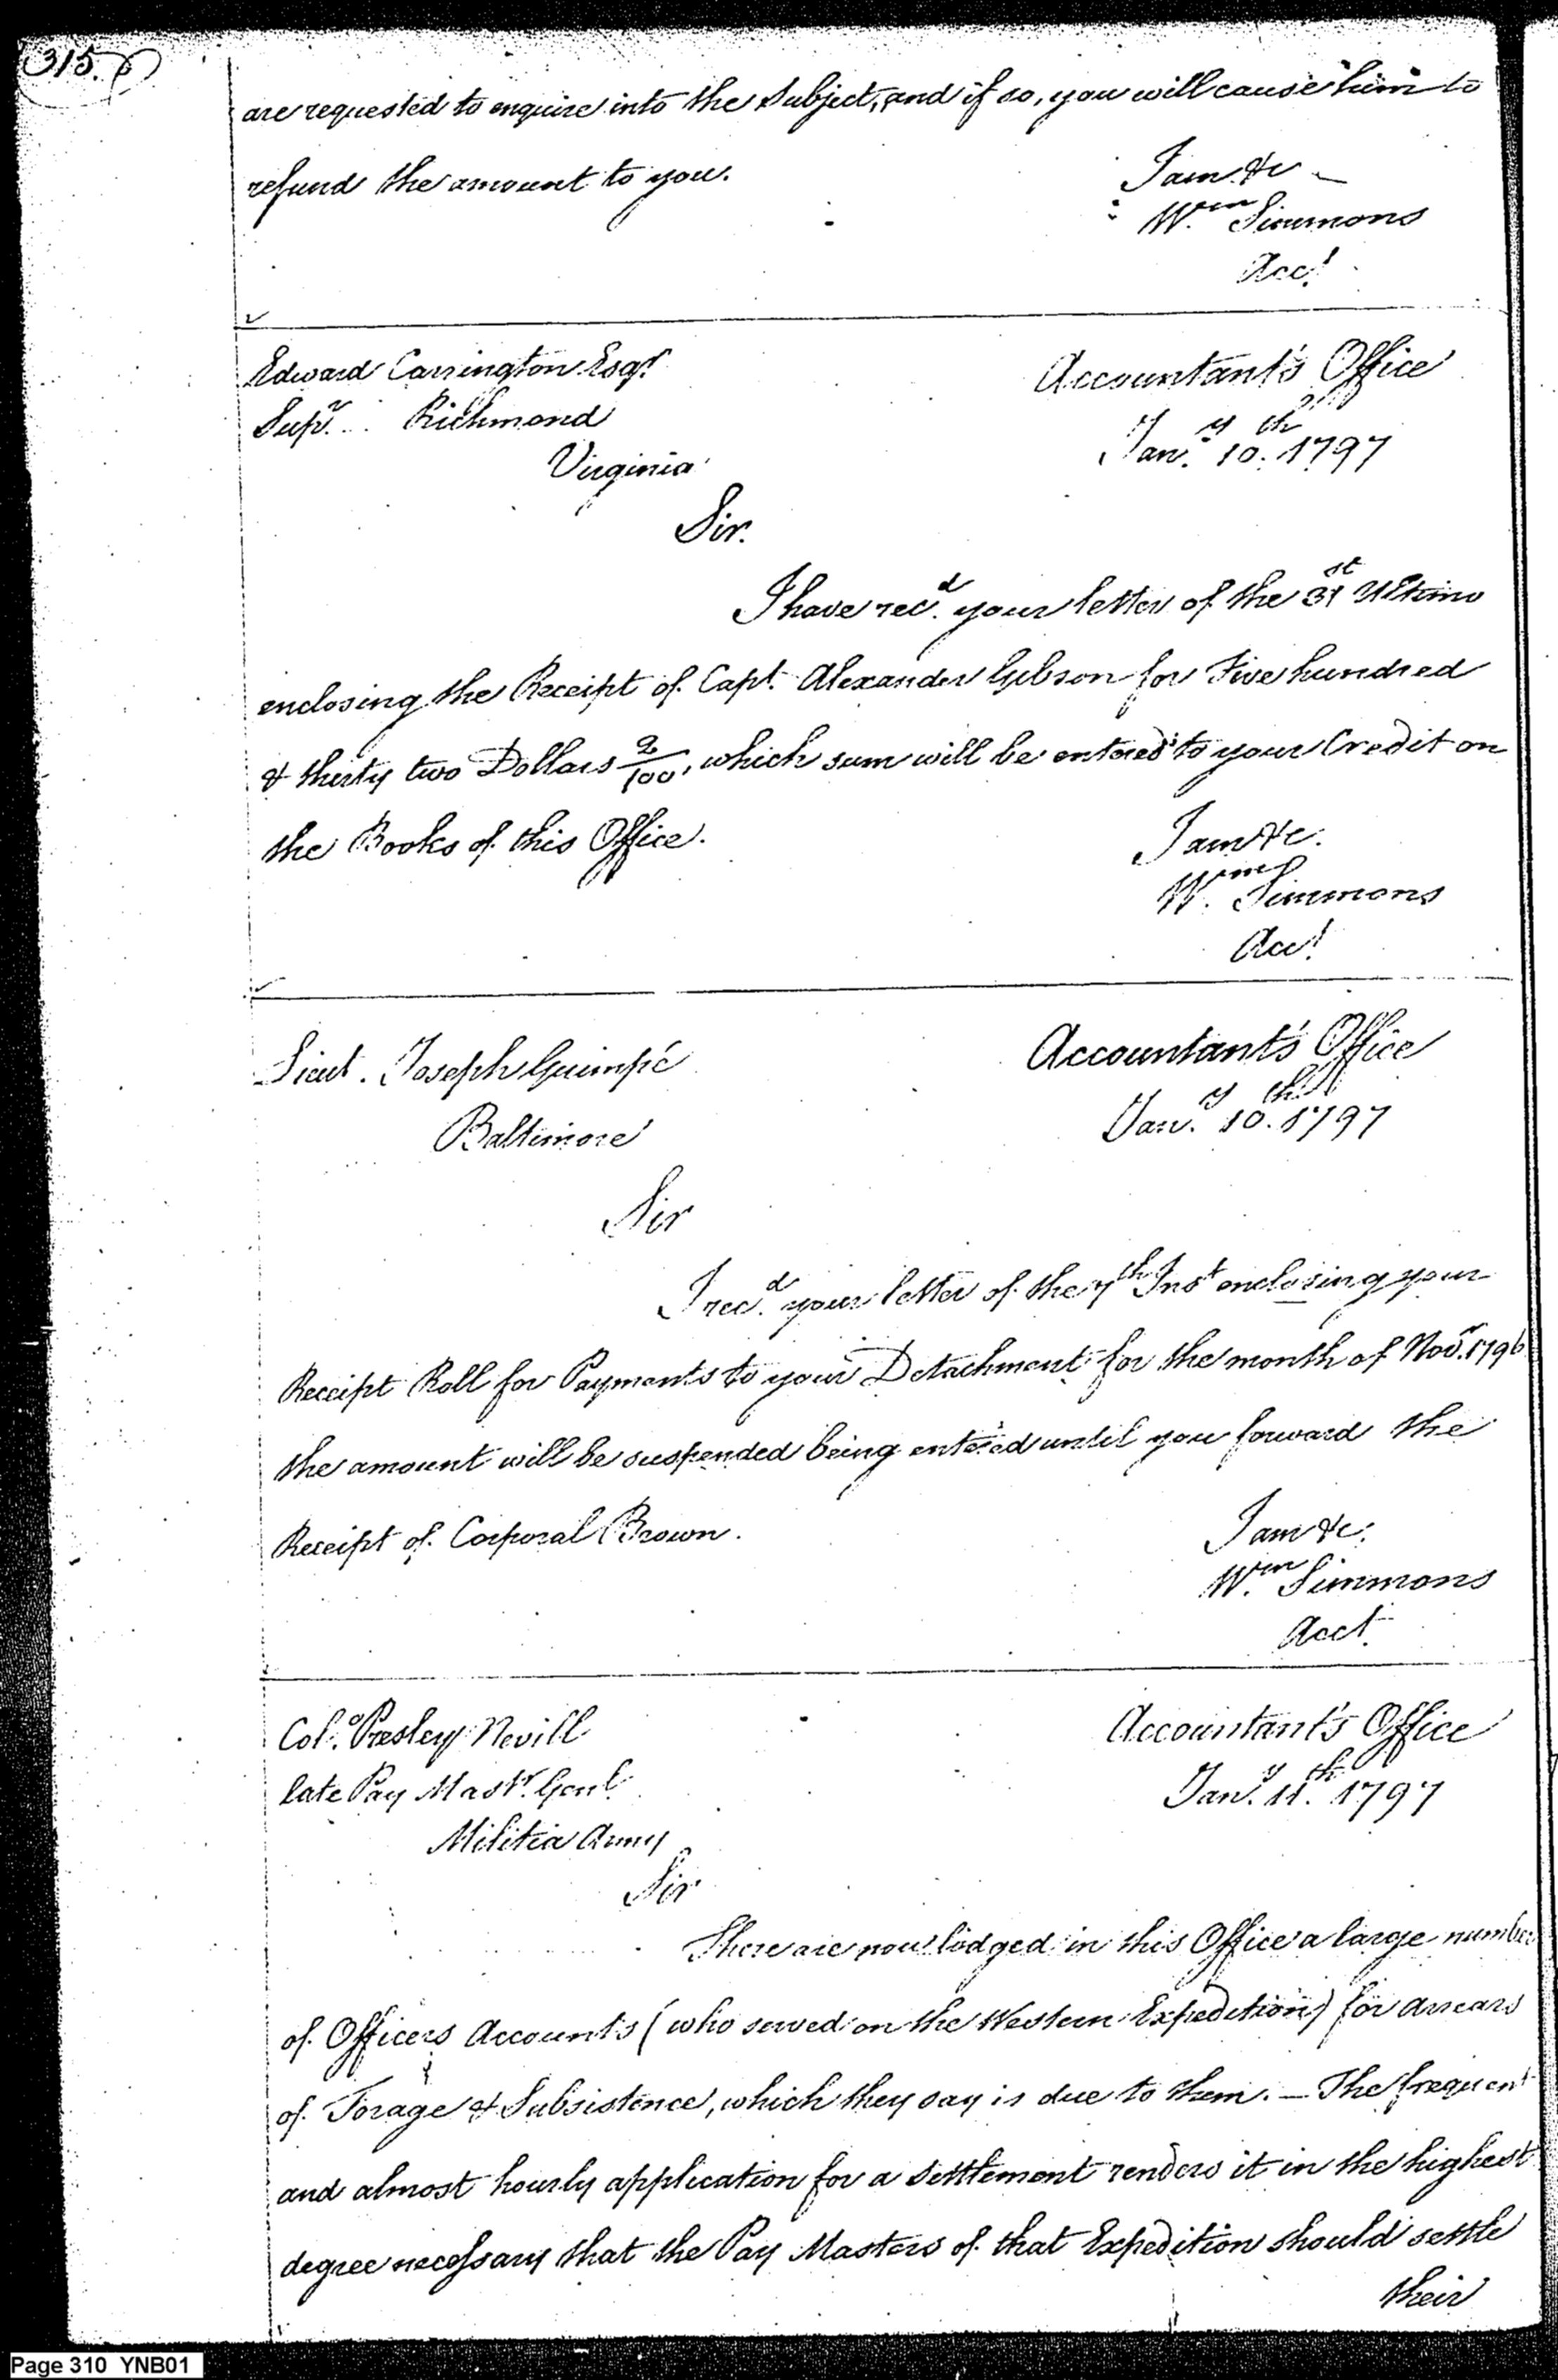 315.
are requested to enquire into the Subject, and if so, you will cause him to
refund the amount to you.
I am &c
Wm Simmons
Acct
Edward Carrington Esqr.
Supr. Richmond
Virginia
Accountant's Office
Jany. 10th. 1797
Sir.
I have recd. your letter of the 31st Ultimo
enclosing the Receipt of Capt. Alexander Gibson for Five hundred
& thirty two Dollars 2/100, which sum will be entered to your Credit on
the Books of this Office.
I am &c.
Wm Simmons
Acct
Lieut. Joseph Guimpé
Baltimore
Accountant's Office
Jany. 10th. 1797
Sir
I recd. your letter of the 7th Inst enclosing your
Receipt Roll for Payments to your Detachment for the month of Novr. 1796
the amount will be suspended being entered until you forward the
Receipt of Corporal Brown.
I am &c.
Wm. Simmons
Acct.
Colo. Presley Nevill
late Pay Mastr. Genl.
Militia Army
Accountant's Office
Jany. 11th. 1797
Sir
There are now lodged in this Office a large number
of Officers Accounts (who served on the Western Expedition) for arrears
of Forage & Subsistence, which they say is due to them. — The frequent
and almost hourly application for a Settlement renders it in the highest
degree necessary that the Pay Masters of that Expedition should settle
their
Page 310 YNB01